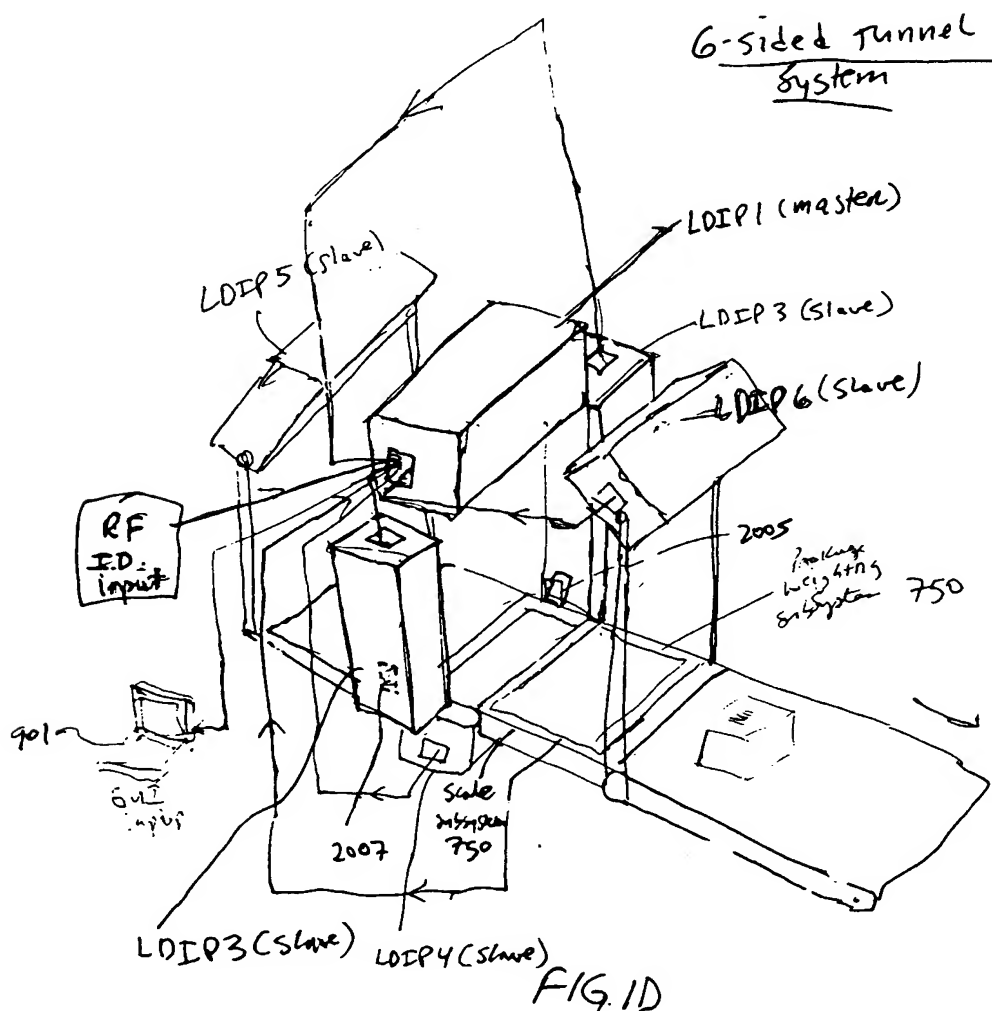 6-sided Tunnel
System
LDIP1 (master)
LDIP5 (slave)
LDIP3 (slave)
LDIP6 (slave)
RF
I.D.
input
2005
Package
weighing
subsystem 750
901
GUI
input
scale
subsystem
750
2007
LDIP3 (slave)
LDIP4 (slave)
FIG. 1D